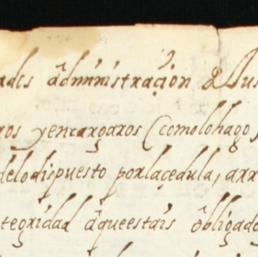 ades admínistracíon & Jus
ros yencargaros (comolohago,
delodispuesto porlaçedula, arr
tegridad aqueestais obligado